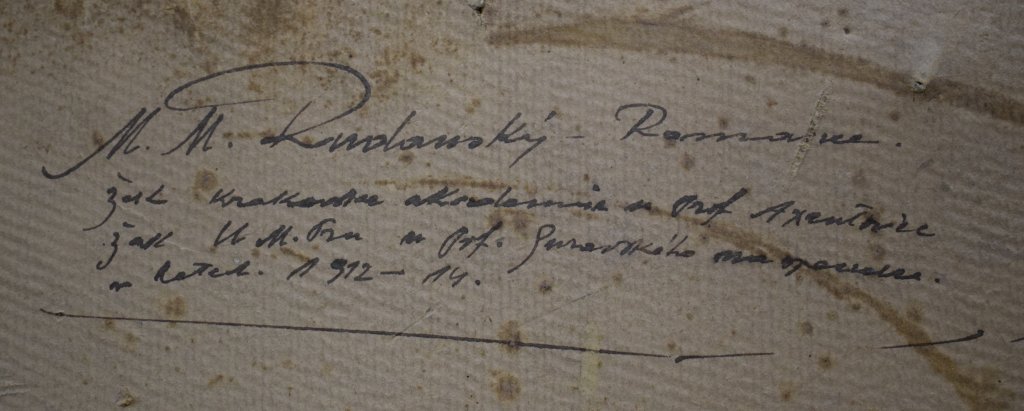 M. M. Rudanský – Romaine.
Žak krakovske akademie u Prof Axentowice
Žak U M. Pru u Prf. Gurarského
v letech. 1912 – 14.